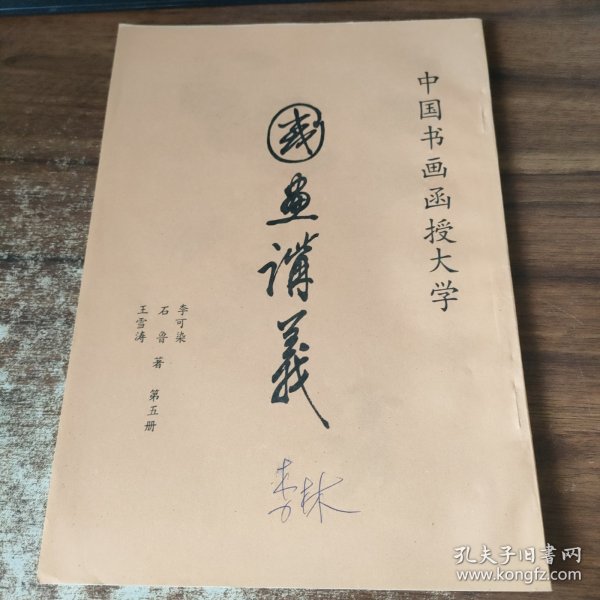 中国书画函授大学
國画講義
李可染
石鲁 著
王雪涛
第五册
李林
孔夫子旧书网
www.kongfz.com